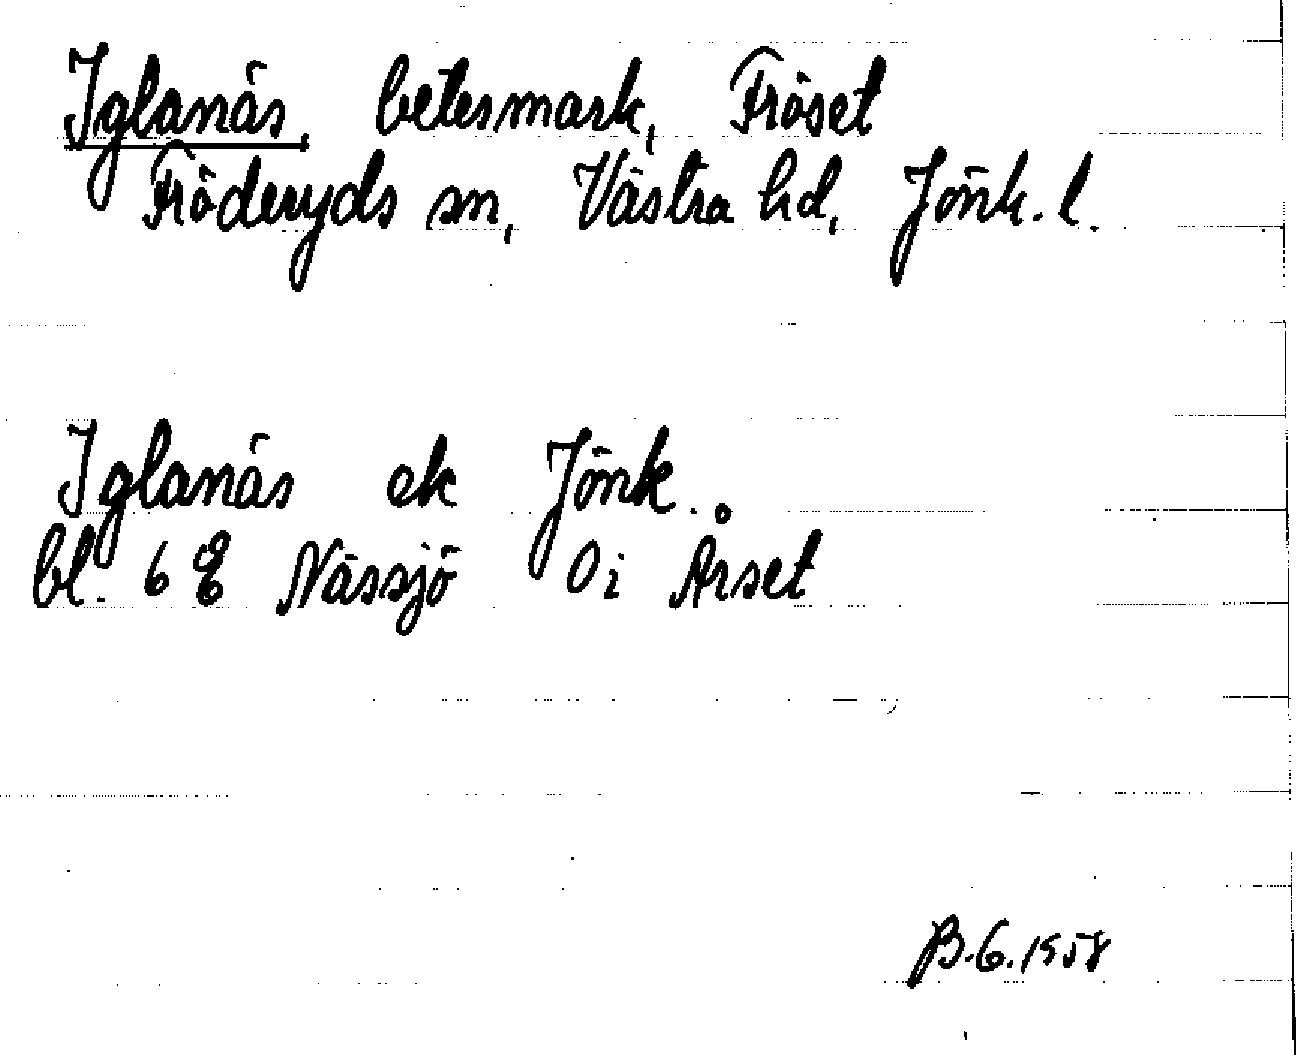 Iglanäs, betesmark, Fröset
Fröderyds sn, Västra hd, Jönk. l.
Iglanäs ek Jönk.
bl. 6 E Nässjö 0 i Årset
B.G. 1958